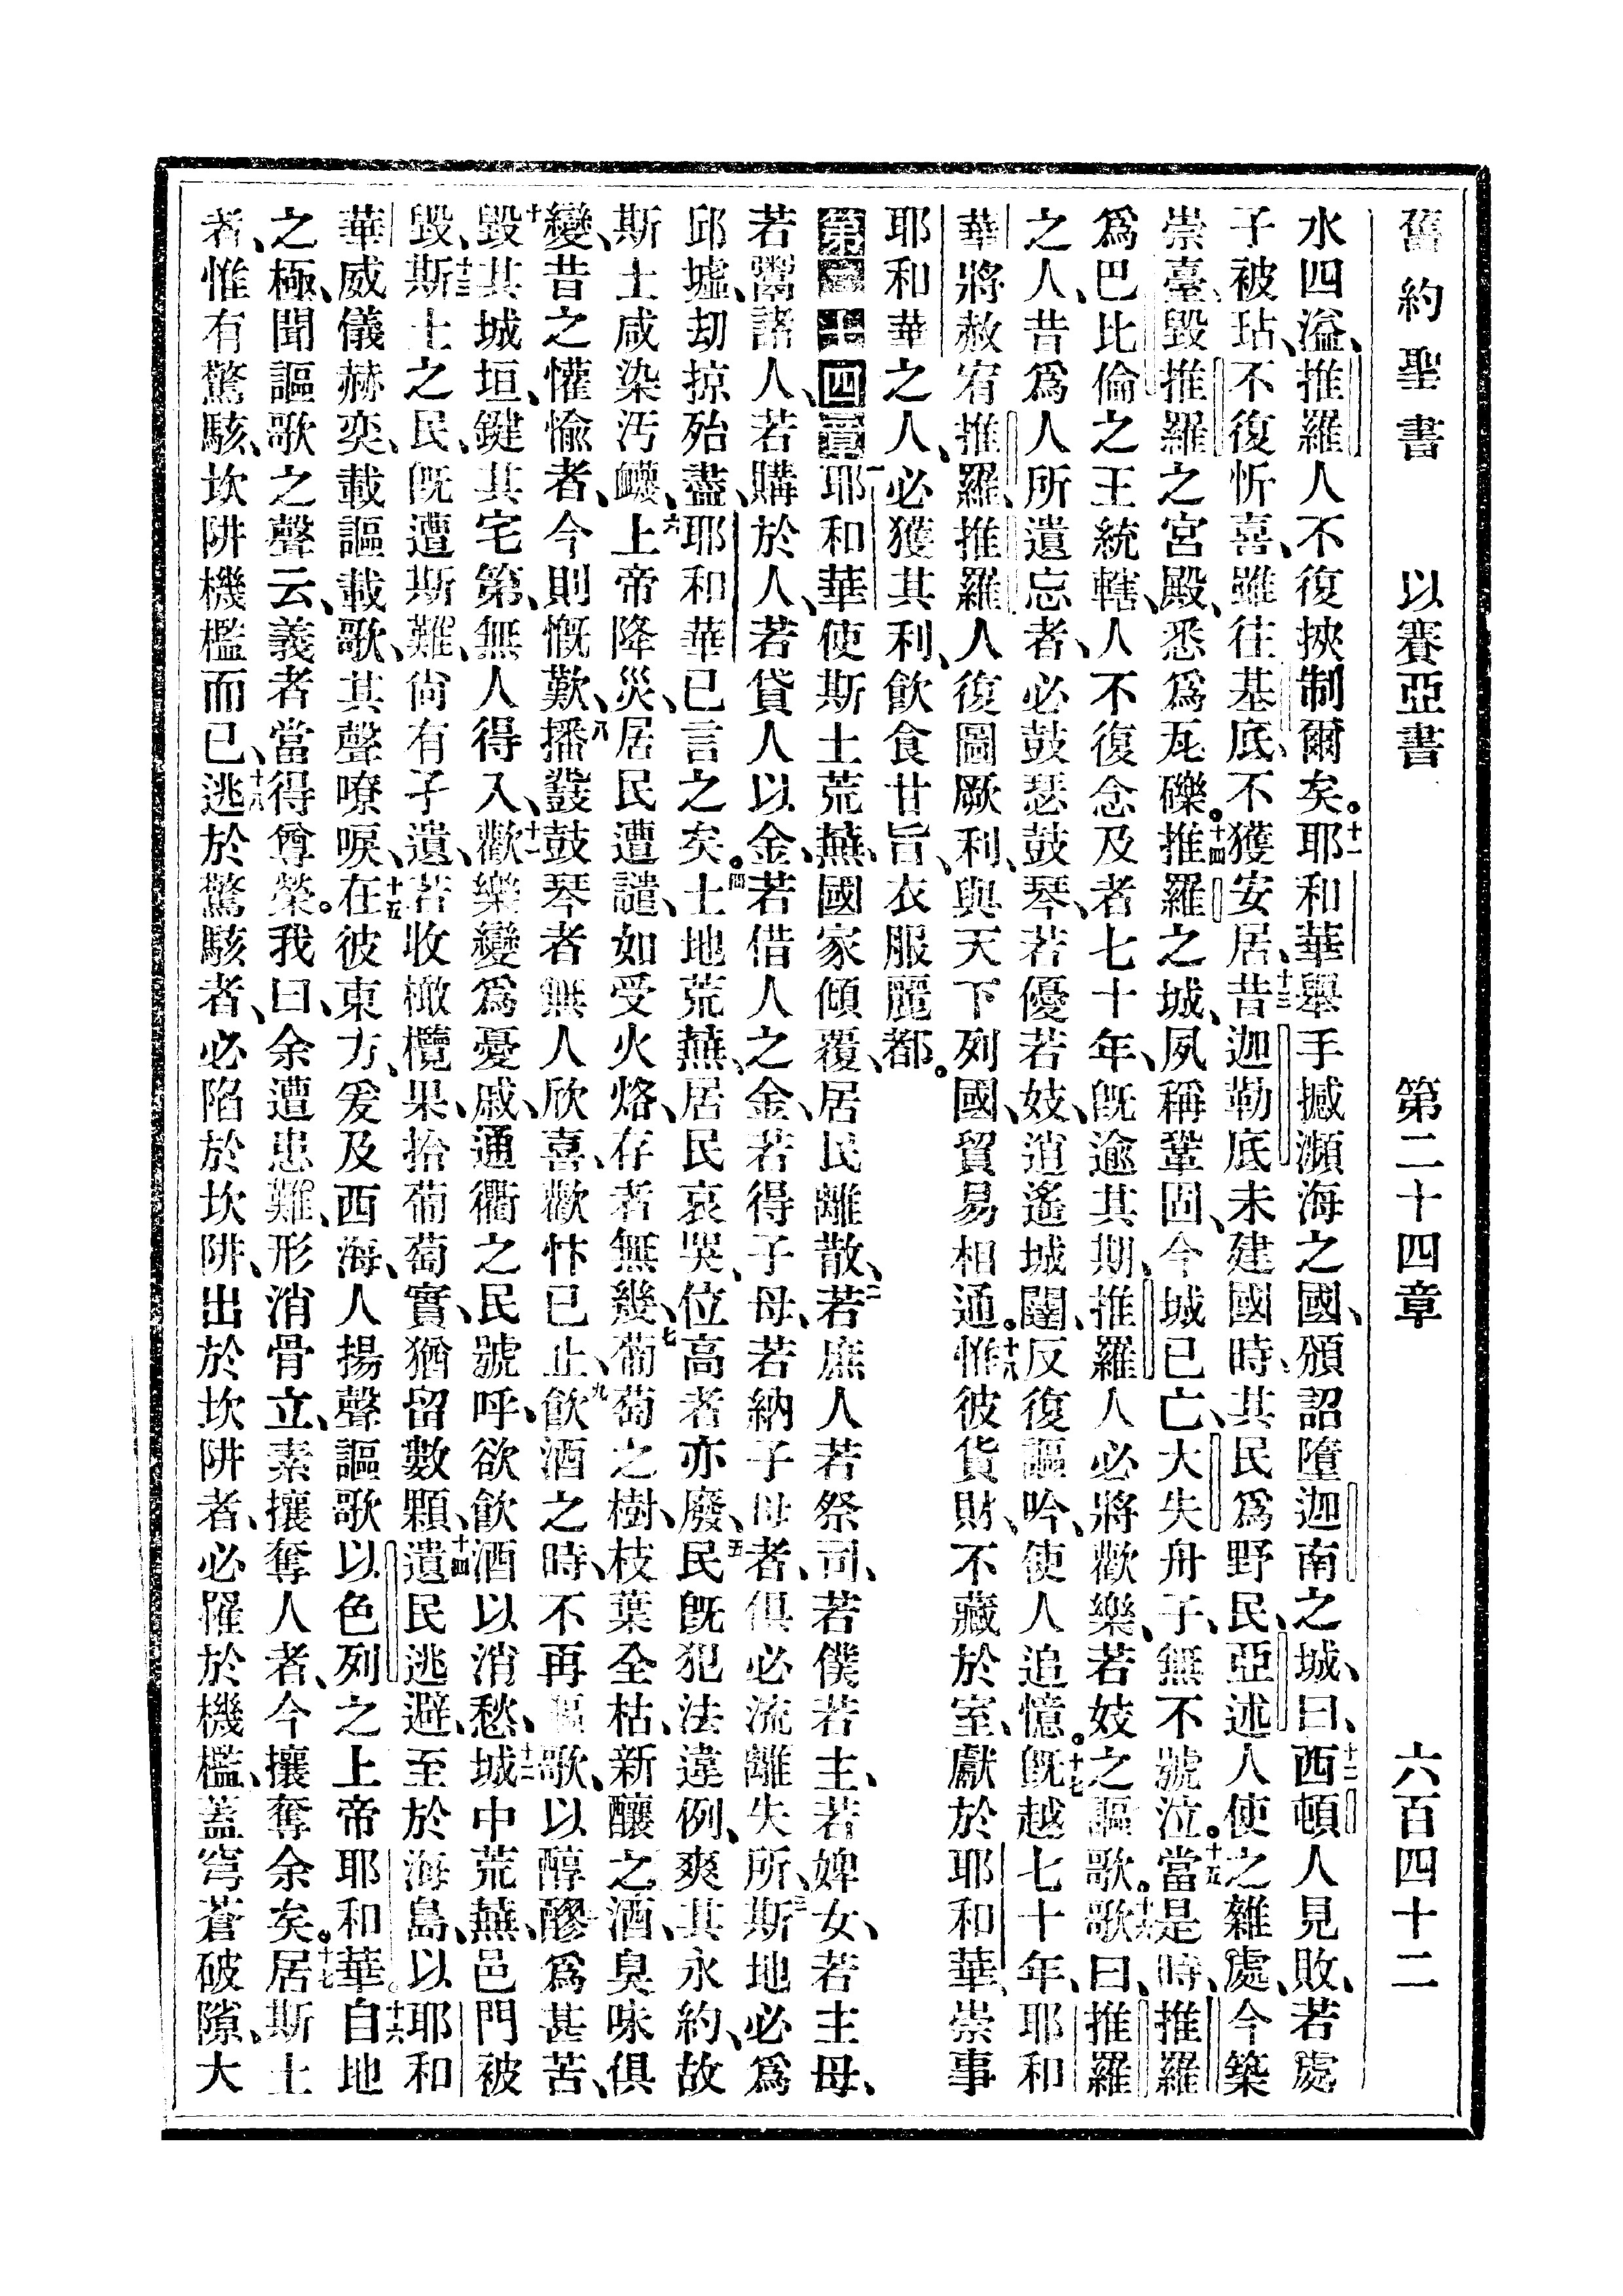 舊約聖書 以賽亞書 第二十四章 六百四十二
水四溢、推羅人不復挾制爾矣。十一耶和華舉手撼瀕海之國、頒詔墮迦南之城、曰、十二西頓人見敗、若處
子被玷、不復忻喜、雖往基底、不獲安居、十三昔迦勒底未建國時、其民爲野民、亞述人使之雜處、今築
崇臺、毀推羅之宮殿、悉爲瓦礫。十四推羅之城、夙稱鞏固、今城已亡、大失舟子、無不號泣。十五當是時、推羅
爲巴比倫之王統轄、人不復念及者七十年、旣逾其期、推羅人必將歡樂、若妓之謳歌。十六歌曰、推羅
之人、昔爲人所遺忘者、必鼓瑟鼓琴、若優若妓、逍遙城闉、反復謳吟、使人追憶。十七旣越七十年、耶和
華將赦宥推羅、推羅人復圖厥利、與天下列國、貿易相通。十八惟彼貨財、不藏於室、獻於耶和華、崇事
耶和華之人、必獲其利、飲食甘旨、衣服麗都。
第二十四章耶和華、使斯土荒蕪、國家傾覆、居民離散、二若庶人若祭司、若僕若主、若婢女、若主母、
若鬻諸人、若購於人、若貸人以金、若借人之金、若得子母、若納子母者、俱必流離失所、三斯地必爲
邱墟、刧掠殆盡、耶和華已言之矣。四土地荒蕪、居民哀哭、位高者亦廢、五民旣犯法違例、爽其永約、故
斯土咸染汚衊、六上帝降災、居民遭譴、如受火烙、存者無幾、七葡萄之樹、枝葉全枯、新釀之酒、臭味俱
變、昔之懽愉者、今則慨歎、八播鼗鼓琴者、無人欣喜、歡忭已止、九飮酒之時、不再謳歌、以醇醪爲甚苦、
十毀其城垣、鍵其宅第、無人得入、十一歡樂變爲憂戚、通衢之民號呼、欲飮酒以消愁、十二城中荒蕪、邑門被
毀、十三斯土之民、旣遭斯難、尙有孑遺、若收橄欖果、拾葡萄實、猶留數顆、十四遺民逃避、至於海島、以耶和
華威儀赫奕、載謳載歌、其聲嘹唳、十五在彼東方、爰及西海、人揚聲謳歌以色列之上帝耶和華。十六自地
之極、聞謳歌之聲云、義者當得尊榮。我曰、余遭患難、形消骨立、素攘奪人者、今攘奪余矣。十七居斯土
者、惟有驚駭、坎阱機檻而已、十八逃於驚駭者、必陷於坎阱、出於坎阱者、必罹於機檻、蓋穹蒼破隙、大